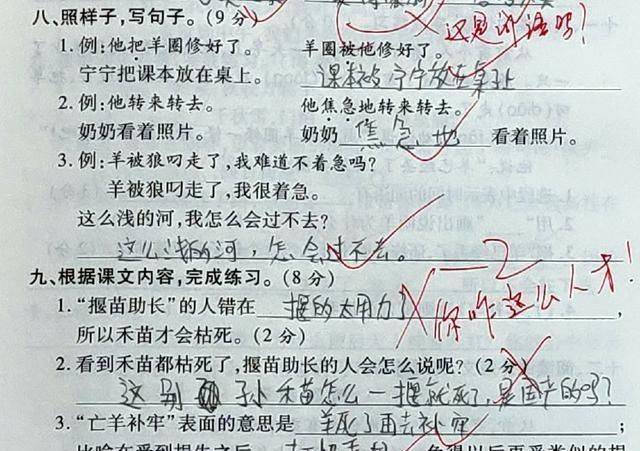 八、照样子,写句子。(9分)
这是讲话吗?
1. 例:他把羊圈修好了。 羊圈被他修好了。
宁宁把课本放在桌上。 课本被宁宁放在桌上
2. 例:他转来转去。 他焦急地转来转去。
奶奶看着照片。 奶奶焦急地看着照片。
3. 例:羊被狼叼走了,我难道不着急吗?
羊被狼叼走了,我很着急。
这么浅的河,我怎么会过不去?
这么浅的河,怎会过不去。
九、根据课文内容,完成练习。(8分)
-2
1.“揠苗助长”的人错在 揠的太用力了,
你咋这么人才!
所以禾苗才会枯死。(2分)
2. 看到禾苗都枯死了,揠苗助长的人会怎么说呢?(2分)
这别 子 禾苗怎么一揠就死了,是国产的吗?
3.“亡羊补牢”表面的意思是 羊死了再去补牢;